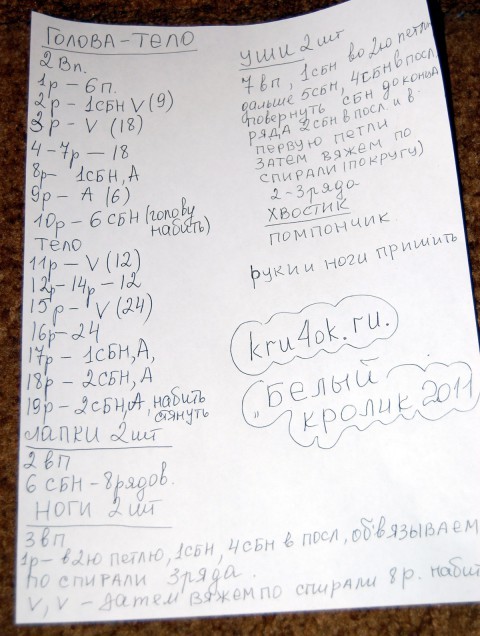 ГОЛОВА-ТЕЛО
2 Вп.
1р - 6 п.
2р - 1СБН V (9)
3р - V (18)
4-7р - 18
8р - 1СБН, А
9р - А (6)
10р - 6 СБН (голову набить)
ТЕЛО
11р - V (12)
12р-14р - 12
15р - V (24)
16р - 24
17р - 1СБН, А,
18р - 2СБН, А
19р - 2СБН, А, набить
стянуть
ЛАПКИ 2 шт
2 ВП
6 СБН - 8рядов.
НОГИ 2 шт
3 ВП
1р - в 2ю петлю, 1СБН, 4СБН в посл, обвязываем
по спирали 3 ряда.
V, V - затем вяжем по спирали 8 р. набит
УШИ 2 шт
7 ВП, 1СБН во 2ю петлю
дальше 5СБН, 4СБН в посл
повернуть СБН до конца
ряда 2СБН в посл. и в.
первую петли
затем вяжем по
спирали (по кругу)
2-3 ряда
ХВОСТИК
ПОМПОНЧИК
руки и ноги пришить
kru4ok.ru.
„БЕЛЫЙ
КРОЛИК 2011